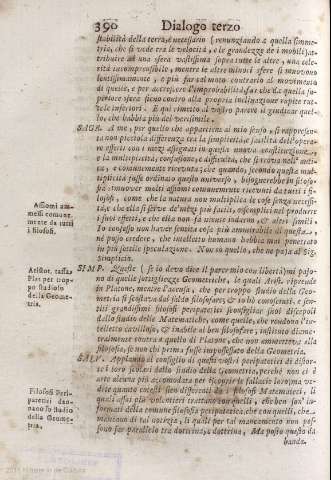 390 Dialogo terzo
stabilità della terra, è necessario (renunziando a quella simme-
tria, che si vede tra le velocità, e le grandezze de i mobili) at-
tribuire ad una sfera vastissima sopra tutte le altre, una cele-
rità incomprensibile, mentre le altre minori sfere si muovono
lentissimamente, e più far tal moto contrario al movimento
di quelle, e per accrescere l'improbabilità far che da quella su-
periore sfera sieno contro alla propria inclinazione rapite tut-
te le inferiori. E qui rimetto al vostro parere il giudicar quel-
lo, che habbia più del verisimile.
SAGR. A me, per quello che appartiene al mio senso, si rappresen-
ta non piccola differenza tra la simplicità, e facilità dell'opera-
re effetti con i mezi assegnati in questa nuova constituzione,
e la multiplicità, confusione, e difficultà, che si trova nell' anti-
ca, e comunemente ricevuta; che quando, secondo questa mul-
tiplicità fusse ordinato questo universo, bisognerebbe in filoso-
fia rimuover molti assiomi comunemente ricevuti da tutti i fi-
losofi, come che la natura non multiplica le cose senza necessi-
tà; e che ella si serve de' mezi più facili, e semplici nel produrre
i suoi effetti; e che ella non fà niente indarno, ed altri simili.
Io confesso non haver sentita cosa più ammirabile di questa,
nè posso credere, che intelletto humano habbia mai penetrato
in più sottile speculazione. Non so quello, che ne paja al Sig.
Simplicio.
Assiomi am-
messi comune-
mente da tutti
i filosofi.
SIMP. Queste (se io devo dire il parer mio con libertà) mi pajo-
no di quelle sottigliezze Geometriche, le quali Arist. riprende
in Platone, mentre l'accusa, che per troppo studio della Geo-
metria si scostava dal saldo filosofare; & io hò conosciuti, e sen-
titi grandissimi filosofi peripatetici sconsigliar suoi discepoli
dallo studio delle Matematiche, come quelle, che rendono l'in-
telletto cavilloso, & inabile al ben filosofare; instituto diame-
tralmente contrario a quello di Platone, che non ammetteva alla
filosofia, se non chi prima fusse impossessato della Geometria.
Aristot. tassa
Plat. per trop-
po studioso
della Geome-
tria.
SALV. Applaudo al consiglio di questi vostri peripatetici di distor-
re i loro scolari dallo studio della Geometria, perchè non ci è
arte alcuna più accomodata per scoprir le fallacie loro; ma ve-
dete quanto cotesti sien differenti da i filosofi Matematici, li
quali assai più volentieri trattano con quelli, che ben son' in-
formati della comune filosofia peripatetica, che con quelli, che
mancano di tal notizia, li quali per tal mancamento non pos-
sono far parallelo tra dottrina, e dottrina. Ma posto questo da
Filosofi Peri-
patetici dan-
nano lo studio
della Geome-
tria.
banda,